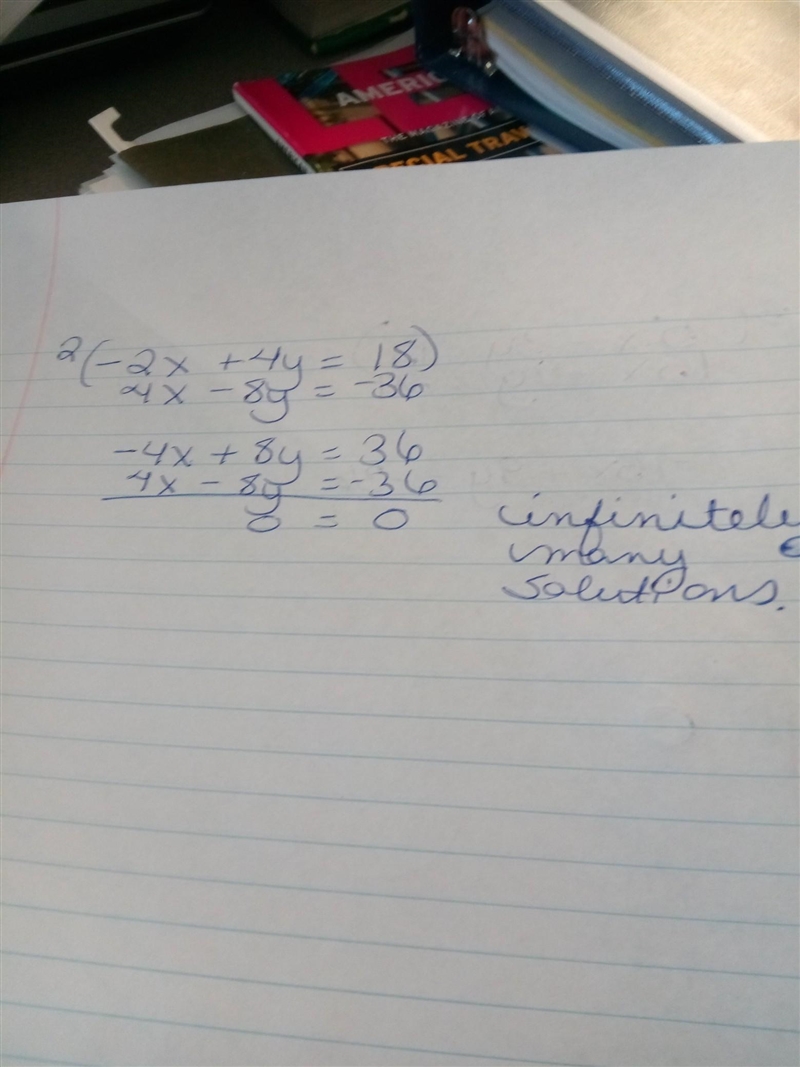 AMERIC
THE MAGAZINE OF
SPECIAL TRAV
2(-2x + 4y = 18)
4x - 8y = -36
-4x + 8y = 36
4x - 8y = -36
0 = 0
infinitely
many
solutions.